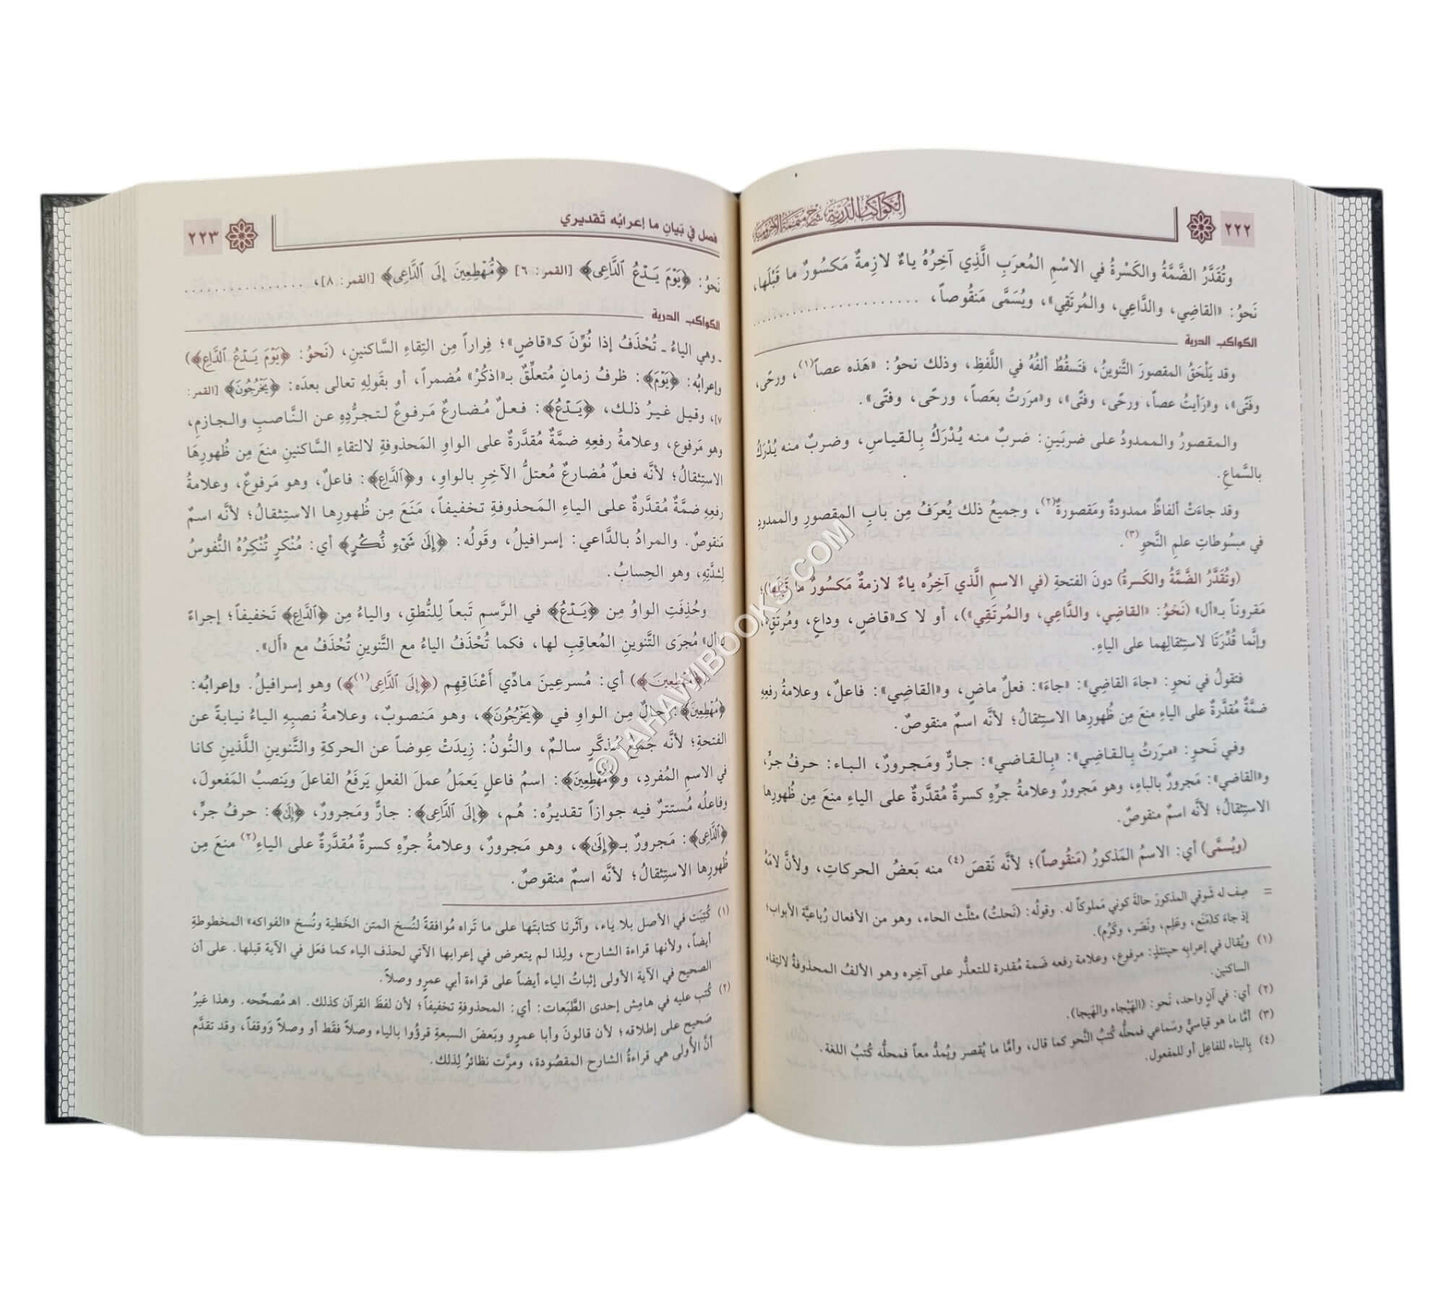 ٢٢٢
الكواكب الدرية شرح متممة الآجرومية
وتُقَدَّرُ الضَّمَّةُ والكَسْرةُ في الاسْمِ المُعرَبِ الَّذِي آخِرُهُ ياءٌ لازِمةٌ مَكسُورٌ ما قَبْلَها،
نَحوُ: «القاضِي، والدَّاعِي، والمُرتَقِي»، ويُسَمَّى مَنقُوصاً، ....................
الكواكب الدرية
وقد يَلْحَقُ المقصورَ التَّنوينُ، فتَسقُطُ ألفُهُ في اللَّفظِ، وذلك نحوُ: «هَذه عصاً(١)، ورحًى،
وفتًى»، و«رَأيتُ عصاً، ورحًى، وفتًى»، و«مررَتُ بعَصاً، ورحًى، وفتًى».
والمقصورُ والممدودُ على ضربَينِ: ضربٌ منه يُدْرَكُ بِالقياسِ، وضربٌ منه يُدْرَكُ
بالسَّماعِ.
وقد جاءَتْ ألفاظٌ ممدودةٌ ومَقصورةٌ(٢)، وجميعُ ذلك يُعرَفُ مِن بابِ المقصورِ والممدودِ
في مبسُوطاتِ علمِ النَّحوِ(٣).
(وتُقَدَّرُ الضَّمَّةُ والكَسرةُ) دونَ الفتحةِ (في الاسمِ الَّذي آخِرُه ياءٌ لازمةٌ مَكسُورٌ ما قَبْلَها)؛
مَقروناً بـ«أل» (نَحْوُ: «القاضِي، والدَّاعِي، والمُرتَقِي»)، أو لا كـ«قاضٍ، وداعٍ، ومُرتَقٍ»،
وإنَّما قُدِّرَتَا لاستِثقالِهما على الياءِ.
فتقولُ في نحوِ: «جاءَ القاضِي»: «جاءَ»: فعلٌ ماضٍ، و«القاضِي»: فاعلٌ، وعلامةُ رفعِهِ
ضمَّةٌ مُقدَّرةٌ على الياءِ منعَ مِن ظُهورِها الاستِثقالُ؛ لأنَّه اسمٌ منقوصٌ.
وفي نَحوِ: «مررَتُ بِالقاضِي»: «بِالقاضِي»: جارٌّ ومَجرورٌ، الباء: حرفُ جرٍّ،
و«القاضي»: مَجرورٌ بالباءِ، وهو مَجرورٌ وعلامةُ جرِّهِ كسرةٌ مُقدَّرةٌ على الياءِ منعَ مِن ظُهورِها
الاستِثقالُ؛ لأنَّه اسمٌ منقوصٌ.
(ويُسمَّى) أي: الاسمُ المَذكورُ (مَنقُوصاً)؛ لأنَّه نَقصَ(٤) منه بَعضُ الحركاتِ، ولأنَّ لامَهُ
= صِف له شَوقي المذكورَ حالَة كوني مَملوكاً له. وقولُه: (نَحلتُ) مثلَّث الحاء، وهو من الأفعال رُباعيَّة الأبواب؛
إذ جاءَ كـ(مَنَع، وعَلِم، ونَصَر، وكَرُم).
(١) ويُقال في إعرابِه حينئذٍ: مرفوع، وعلامة رفعه ضَمة مُقدرة للتعذُّر على آخِرِه وهو الألفُ المحذوفةُ لالتِقاء
الساكنين.
(٢) أي: في آنٍ واحد، نَحو: (الهَيْجاء والهَيجا).
(٣) أمَّا ما هو قياسيٌّ وسَماعي فمحلُّه كُتبُ النَّحو كما قال، وأمَّا ما يُقصر ويُمدُّ معاً فمحلُّه كُتبُ اللغة.
(٤) بِالبناء للفاعِل أو للمفعول.
فصل في بَيانِ ما إعرابُه تَقديري
٢٢٣
نَحوُ: ﴿يَوْمَ يَدْعُ الدَّاعِى﴾ [القمر: ٦] ﴿مُّهْطِعِينَ إِلَى الدَّاعِى﴾ [القمر: ٨]، ....................
الكواكب الدرية
ـ وهي الياءُ ـ تُحْذَفُ إذا نُوِّنَ كـ«قاضٍ»؛ فِراراً مِن التِقاءِ السَّاكنينِ، (نَحوُ: ﴿يَوْمَ يَدْعُ الدَّاعِ﴾)
وإعرابُه: ﴿يَوْمَ﴾: ظرفُ زمانٍ مُتعلِّقٌ بـ«اذكُرْ» مُضمراً، أو بقَولِهِ تعالى بعدَه: ﴿يَخْرُجُونَ﴾ [القمر:
٧]، وقيل غيرُ ذلك، ﴿يَدْعُ﴾: فعلٌ مُضارعٌ مَرفوعٌ لتَجرُّدِهِ عن النَّاصبِ والجازمِ،
وهو مَرفوع، وعلامةُ رفعِهِ ضمَّةٌ مُقدَّرةٌ على الواوِ المَحذوفةِ لالتقاءِ السَّاكنينِ منعَ مِن ظُهورِهَا
الاستِثقالُ؛ لأنَّه فعلٌ مُضارعٌ مُعتلُّ الآخِرِ بالواوِ، و﴿الدَّاعِ﴾: فاعلٌ، وهو مَرفوعٌ، وعلامةُ
رفعِهِ ضمَّةٌ مُقدَّرةٌ على الياءِ المَحذوفةِ تَخفيفاً، مَنَعَ مِن ظُهورِها الاستِثقالُ؛ لأنَّه اسمٌ
مَنقوصٌ. والمرادُ بالدَّاعي: إسرافيلُ، وقَولُه: ﴿إِلَى شَىْءٍ نُّكُرٍ﴾ أي: مُنْكَرٍ تُنْكِرُهُ النُّفوسُ
لِشدَّتِهِ، وهو الحِسابُ.
وحُذِفَتِ الواوُ مِن ﴿يَدْعُ﴾ في الرَّسمِ تَبعاً لِلنُّطقِ، والياءُ مِن ﴿الدَّاعِ﴾ تَخفيفاً؛ إجراءً
لـ«أل» مُجرَى التَّنوينِ المُعاقِبِ لها، فكما تُحْذَفُ الياءُ مع التَّنوينِ تُحْذَفُ مع «أل».
(﴿مُّهْطِعِينَ﴾) أي: مُسرعِينَ مادِّي أعْنَاقِهم (﴿إِلَى الدَّاعِى(١)﴾) وهو إسرافيلُ. وإعرابُه:
﴿مُّهْطِعِينَ﴾: حالٌ مِن الواوِ في ﴿يَخْرُجُونَ﴾، وهو مَنصوبٌ، وعلامةُ نصبِهِ الياءُ نيابةً عن
الفتحةِ؛ لأنَّه جَمعُ مُذكَّرٍ سالمٌ، والنُّونُ: زِيدَتْ عوضاً عن الحركةِ والتَّنوينِ اللَّذينِ كانا
في الاسمِ المُفردِ، و﴿مُّهْطِعِينَ﴾: اسمُ فاعلٍ يَعمَلُ عملَ الفعلِ يَرفَعُ الفاعلَ ويَنصبُ المَفعولَ،
وفاعلُه مُستترٌ فيه جوازاً تقديرُه: هُم، ﴿إِلَى الدَّاعِى﴾: جارٌّ ومَجرورٌ، ﴿إِلَى﴾: حرفُ جرٍّ،
﴿الدَّاعِى﴾: مَجرورٌ بـ﴿إِلَى﴾، وهو مَجرورٌ، وعلامةُ جرِّهِ كسرةٌ مُقدَّرةٌ على الياءِ(٢) منعَ مِن
ظُهورِها الاستِثقالُ؛ لأنَّه اسمٌ منقوصٌ.
(١) كُتِبَت في الأصل بلا ياء، وآثرنا كتابتَها على ما تَراه مُوافقةً لنُسخ المتن الخَطية ونُسخ «الفواكه» المخطوطةِ
أيضاً، ولأنها قراءة الشارح، ولِذا لم يتعرض في إعرابها الآتي لحذف الياء كما فعَل في الآية قبلَها. على أن
الصحيح في الآية الأولى إثباتُ الياء أيضاً على قراءة أبي عمرٍو وصلاً.
(٢) كُتب عليه في هامِش إحدى الطَّبَعات: أي: المحذوفةِ تخفيفاً؛ لأن لفظَ القرآن كذلك. اهـ مُصحِّحه. وهذا غيرُ
صَحيح على إطلاقه؛ لأن قالونَ وأبا عمرٍو وبَعضَ السبعةِ قرؤُوا بالياء وصلاً فقَط أو وصلاً وَوقفاً، وقد تقدَّم
أنَّ الأُولى هي قراءةُ الشارح المقصُودة، ومرَّت نظائرُ لِذلك.
©TAHAWIBOOKS.COM